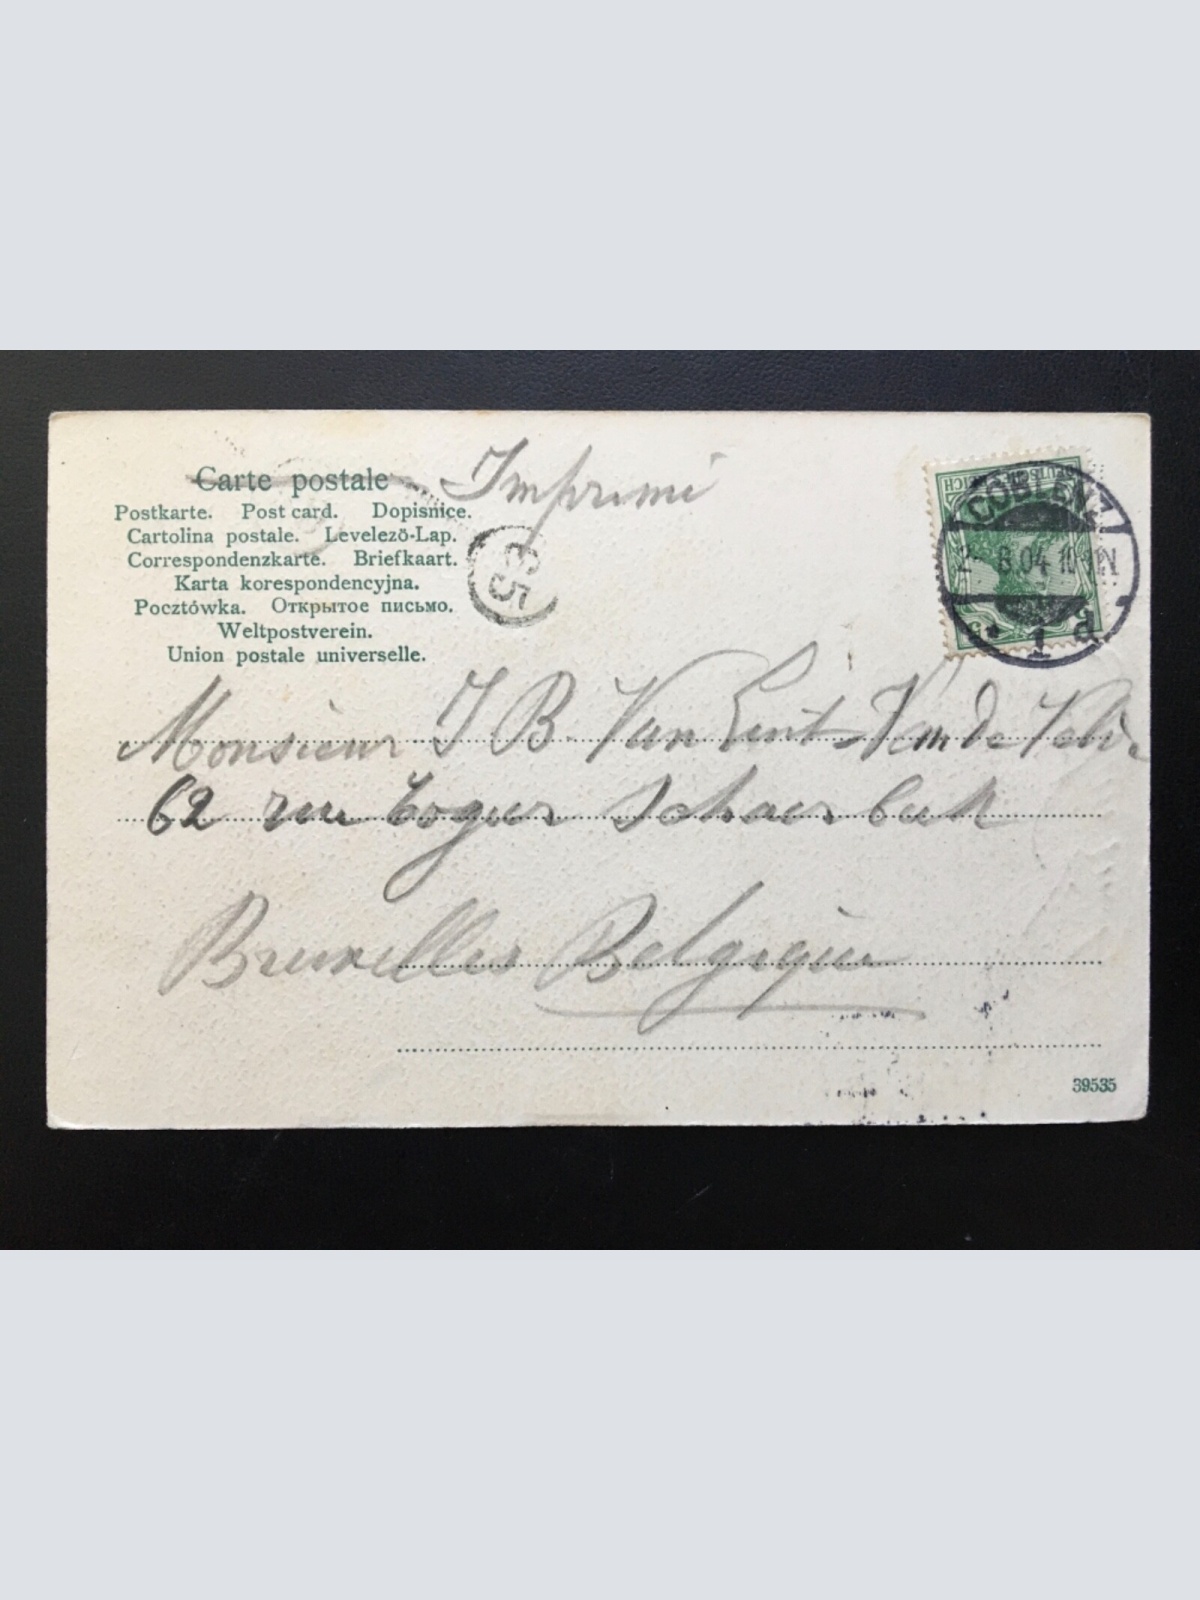 Carte postale
Imprimi
Postkarte. Post card. Dopisnice.
Cartolina postale. Levelező-Lap.
Correspondenzkarte. Briefkaart.
Karta korespondencyjna.
Pocztówka. Открытое письмо.
Weltpostverein.
Union postale universelle.
35
DEUTSCHES REICH
COBLENZ
2 8.04 10 N
* 1 d
5
Monsieur J B. Van Lint-Van de Velde
62 rue Rogier Schaerbeek
Bruxelles Belgique
39535